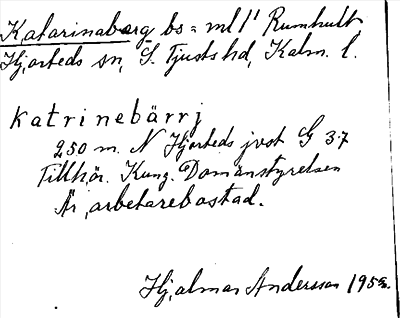 Katarinaberg bs = ml 1/1 Rumhult
Hjorteds sn, S. Tjusts hd, Kalm. l.
katrinebärrj
250 m. N Hjorteds jvst G 37
Tillhör. Kung. Domänstyrelsen
Är arbetarebostad.
Hjalmar Andersson